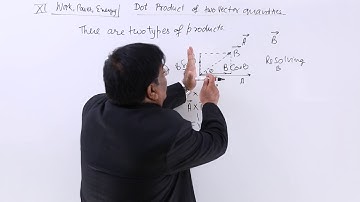 XI Work, Power, Energy Dot Product of two Vector quantities
There are two types of products
A B
B
Resolving
B
B Cosθ
A
A X